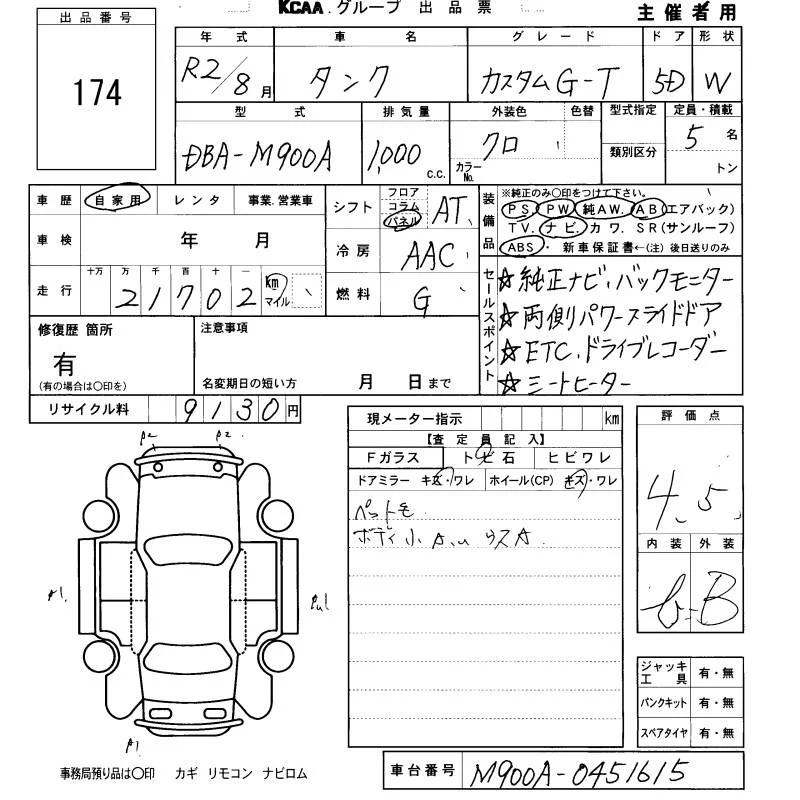 KCAA.グループ 出品票
主催者用
出品番号
174
年式 車名 グレード ドア 形状
R2/8月 タンク カスタムG-T 5D W
型式 排気量 外装色 色替 型式指定 定員・積載
DBA-M900A 1,000 c.c. クロ カラーNo. 類別区分 5名 トン
車歴 自家用 レンタ 事業.営業車
車検 年 月
走行 十万 万 千 百 十 一
21702 km マイル
シフト フロア コラム パネル AT
冷房 AAC
燃料 G
装備品
※純正のみ○印をつけて下さい。
PS. PW. 純AW. AB(エアバック)
TV. ナビ. カワ. SR(サンルーフ)
ABS ・ 新車保証書←(注) 後日送りのみ
セールスポイント
☆純正ナビ、バックモニター
☆両側パワースライドドア
☆ETC、ドライブレコーダー
☆シートヒーター
修復歴 箇所
有
(有の場合は○印を)
注意事項
名変期日の短い方 月 日まで
リサイクル料 9130円
現メーター指示 km
【査定員記入】
Fガラス トビ石 ヒビワレ
ドアミラー キズ・ワレ ホイール(CP) キズ・ワレ
ペット毛
ボディ小A,u ウスA
評価点
4.5
内装 外装
b B
A2 A2
A1
A1
ジャッキ工具 有・無
パンクキット 有・無
スペアタイヤ 有・無
事務局預り品は○印 カギ リモコン ナビロム
車台番号 M900A-0451615